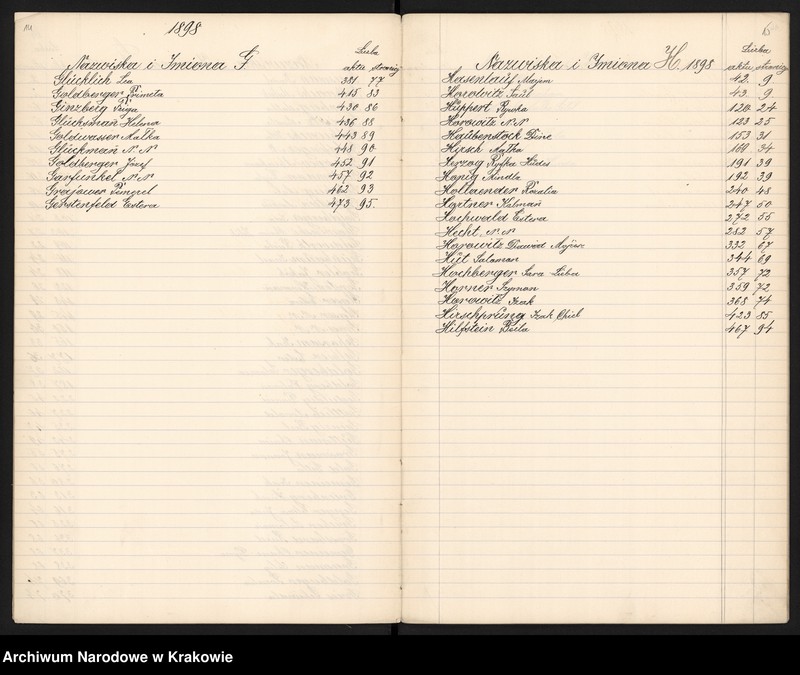 1898
Liczba
Nazwiska i Imiona G
aktu stronicy
Glücklich Lea 391 77
Goldberger 415 83
Ginzberg 430 86
Glücksman Helena 436 88
Goldwasser Malka 443 89
Glückman N.N 448 90
Goldberger Józef 452 91
Garfunkel N.N 457 92
Grajower 462 93
Gerstenfeld Estera 473 95.
Liczba
Nazwiska i Imiona H 1898
aktu stronicy
Hasenlauf Majem 42. 9
Horowitz Saul 43. 9
Hüppert Rywka 120 24
Horowitz N.N 123 25
Haubenstock 153 31
Hirsch Malka 169 34
Herzog Ryfka Hudes 191 39
Honig Mindla 192 39
Hollaender Rozalia 240 48
Hartner Kalman 247 50
Hochwald Estera 272 55
Hecht N.N 282 57
Horowitz Dawid 332 67
Hüt Salamon 344 69
Hochberger Sara Liba 357 72
Horner Szymon 359 72
Horowitz Izak 368 74
Hirschprung Izak Chiel 423 85
Hilfstein Beila 467 94
Archiwum Narodowe w Krakowie